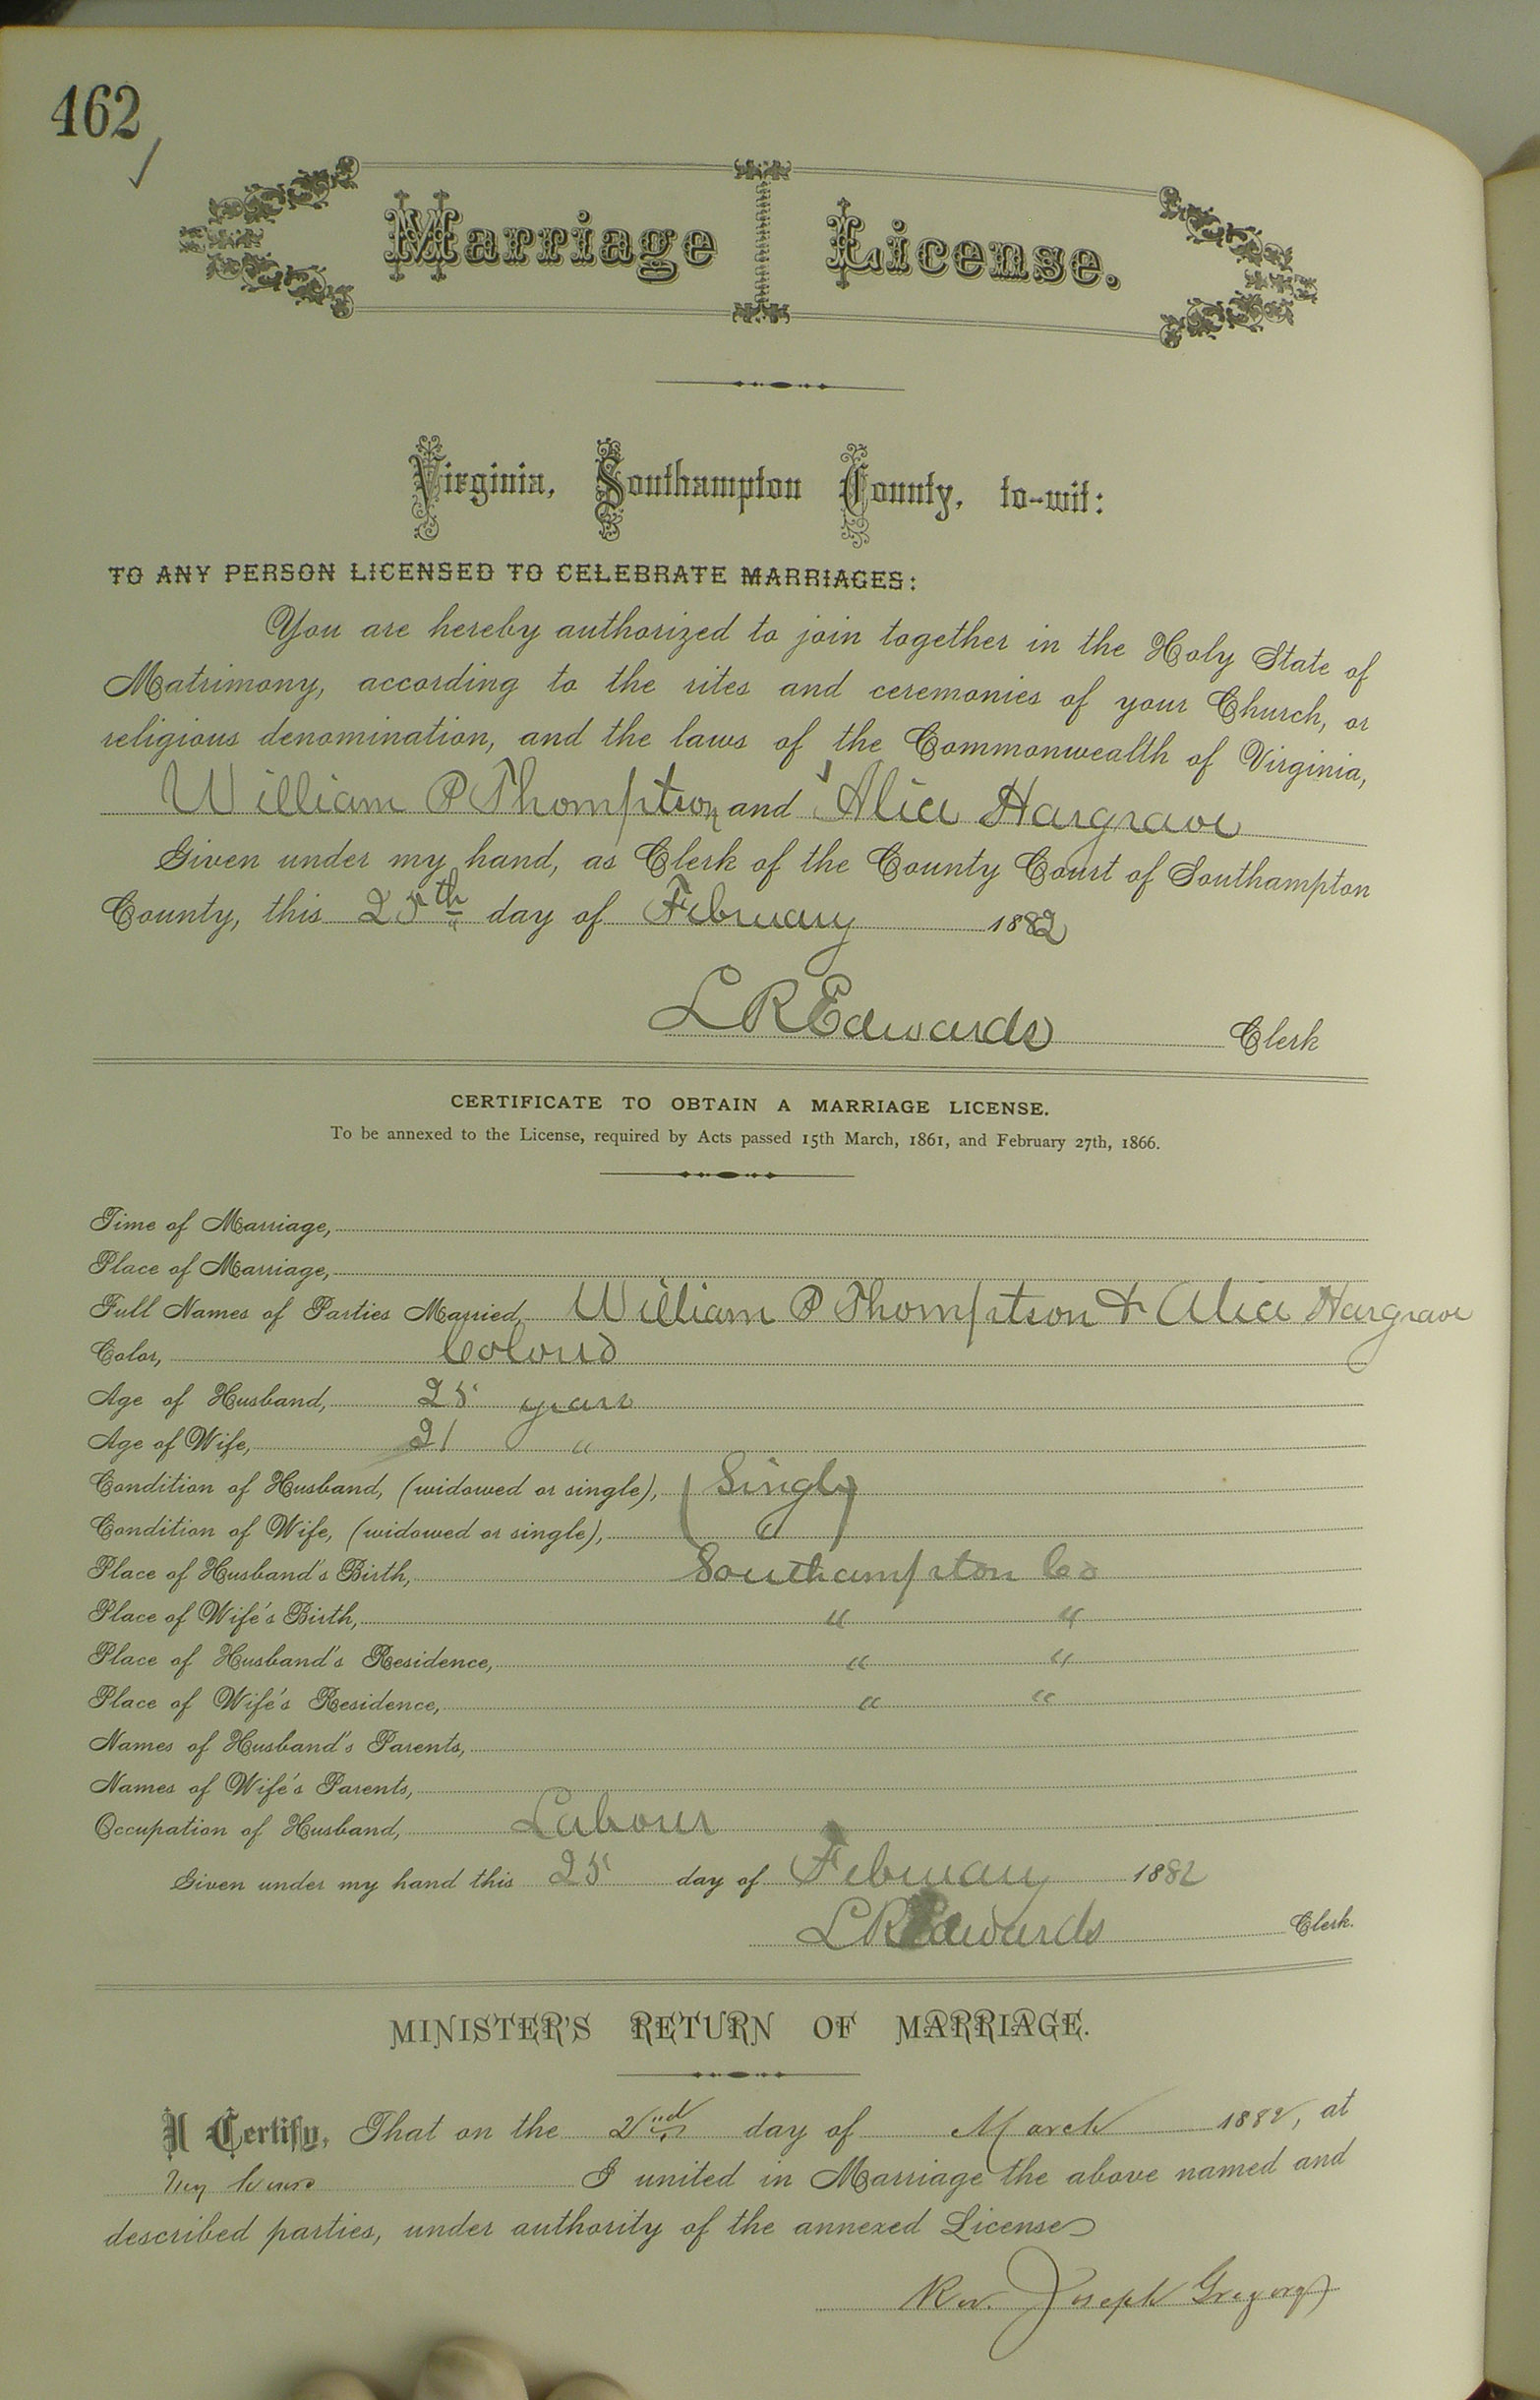 462
Marriage License.
Virginia, Southampton County, to-wit:
TO ANY PERSON LICENSED TO CELEBRATE MARRIAGES:
You are hereby authorized to join together in the Holy State of
Matrimony, according to the rites and ceremonies of your Church, or
religious denomination, and the laws of the Commonwealth of Virginia,
William P Thompson and Alice Hargrave
Given under my hand, as Clerk of the County Court of Southampton
County, this 25th day of February 1882
L R Edwards Clerk
CERTIFICATE TO OBTAIN A MARRIAGE LICENSE.
To be annexed to the License, required by Acts passed 15th March, 1861, and February 27th, 1866.
Time of Marriage,
Place of Marriage,
Full Names of Parties Married, William P Thompson & Alice Hargrave
Color, Colored
Age of Husband, 25 years
Age of Wife, 21 "
Condition of Husband, (widowed or single), Single
Condition of Wife, (widowed or single), "
Place of Husband's Birth, Southampton Co
Place of Wife's Birth, " "
Place of Husband's Residence, " "
Place of Wife's Residence, " "
Names of Husband's Parents,
Names of Wife's Parents,
Occupation of Husband, Labour
Given under my hand this 25 day of February 1882
L R Edwards Clerk.
MINISTER'S RETURN OF MARRIAGE.
I Certify, That on the 2nd day of March 1882, at
My I united in Marriage the above named and
described parties, under authority of the annexed License
Rev. Joseph Gregory